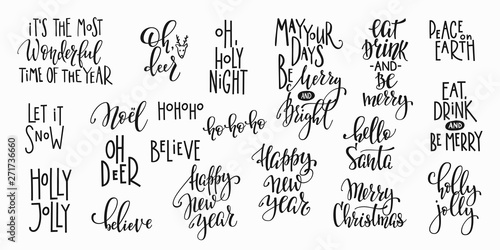 IT'S THE MOST
Wonderful
TIME OF THE YEAR
Oh,
deer
OH,
HOLY
NIGHT
MAY YOUR
DAYS
BE Merry
AND
Bright
eat
DRINK
-AND-
BE
merry
PEACE on
EARTH
LET iT
SNOW
Noël
HOHOHO
ho-ho-ho
OH
DEER
BELIEVE
hello
Santa
EAT,
DRINK
AND
BE MERRY
HOLLY
JOLLY
believe
Happy
New
year
Happy
new
year
Merry
Christmas
holly
jolly
Adobe Stock | #271736660